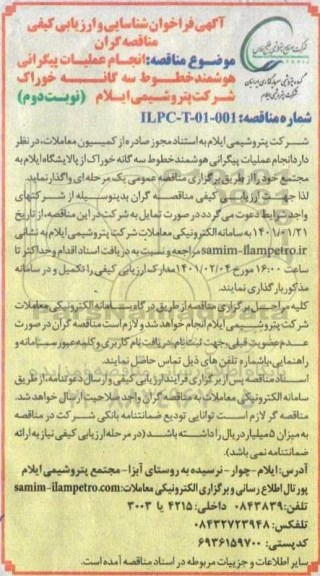 آگهی فراخوان شناسایی و ارزیابی کیفی
مناقصه گران
موضوع مناقصه: انجام عملیات پیگرانی
هوشمند خطوط سه گانه خوراک
شرکت پتروشیمی ایلام (نوبت دوم)
شماره مناقصه: ILPC-T-01-001
شرکت پتروشیمی ایلام به استناد مجوز صادره از کمیسیون معاملات، در نظر
دارد انجام عملیات پیگرانی هوشمند خطوط سه گانه خوراک از پالایشگاه ایلام به
مجتمع خود را از طریق برگزاری مناقصه عمومی یک مرحله ای واگذار نماید.
لذا جهت ارزیابی کیفی مناقصه گران بدینوسیله از شرکتهای
واجد شرایط دعوت می گردد در صورت تمایل به شرکت در این مناقصه، از تاریخ
۱۴۰۱/۰۱/۲۱ به سامانه الکترونیکی معاملات شرکت پتروشیمی ایلام به نشانی
samim-ilampetro.ir مراجعه و نسبت به دریافت اسناد اقدام و حداکثر تا
ساعت ۱۶:۰۰ مورخ ۱۴۰۱/۰۲/۰۴ مدارک ارزیابی کیفی را تکمیل و در سامانه
مذکور بارگذاری نمایند.
کلیه مراحل برگزاری مناقصه از طریق درگاه سامانه الکترونیکی معاملات
شرکت پتروشیمی ایلام انجام خواهد شد و لازم است مناقصه گران در صورت
عدم عضویت قبلی، جهت ثبت نام، دریافت نام کاربری و کلمه عبور سامانه و
راهنمایی، با شماره تلفن های ذیل تماس حاصل نمایند.
اسناد مناقصه پس از برگزاری فرآیند ارزیابی کیفی و ارسال دعوتنامه، از طریق
سامانه الکترونیکی معاملات به مناقصه گران واجد صلاحیت ارسال خواهد شد.
مناقصه گر لازم است توانایی تودیع ضمانتنامه بانکی شرکت در مناقصه
به میزان ۵ میلیارد ریال را داشته باشد (در مرحله ارزیابی کیفی نیاز به ارائه
ضمانتنامه نمی باشد).
آدرس: ایلام - چوار - نرسیده به روستای آبزا - مجتمع پتروشیمی ایلام
پورتال اطلاع رسانی و برگزاری الکترونیکی معاملات: samim-ilampetro.com
تلفن: ۰۸۴۳۸۳۹ داخلی: ۴۲۱۵ یا ۳۰۰۳
تلفکس: ۰۸۴۳۲۷۲۳۹۴۸
کد پستی: ۶۹۳۶۱۵۹۷۰۰
سایر اطلاعات و جزییات مربوطه در اسناد مناقصه آمده است.